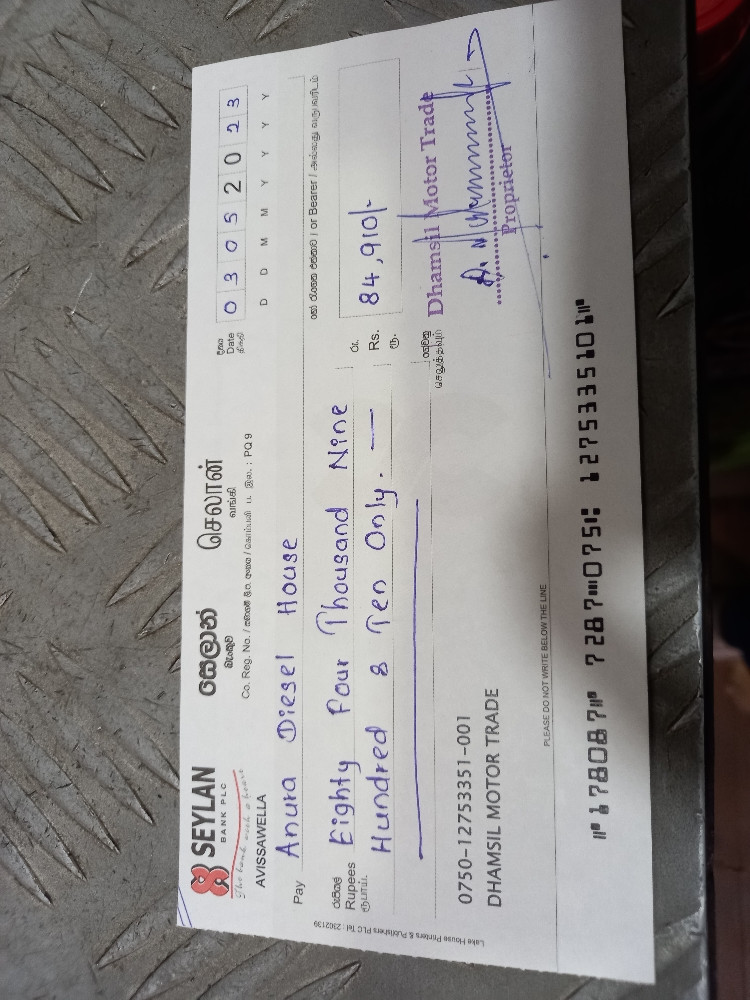 SEYLAN
BANK PLC
The bank with a heart
සෙලාන්
බැංකුව
செலான்
வங்கி
AVISSAWELLA
Co. Reg. No. / PQ 9
දිනය
Date
திகதி
0 3 0 5 2 0 2 3
D D M M Y Y Y Y
Pay Anura Diesel House
හෝ රැගෙන එන්නාට / or Bearer / அல்லது
රුපියල්
Rupees
ரூபாய்
Eighty Four Thousand Nine
Hundred & Ten Only. —
රු.
Rs.
ரூ.
84,910/-
ගෙවනු
செலுத்தவும்
Dhamsil Motor Trade
Proprietor
0750-12753351-001
DHAMSIL MOTOR TRADE
PLEASE DO NOT WRITE BELOW THE LINE
⑈178087⑈ 7287⑉075⑆ 1275335101⑈
Lake House Printers & Publishers PLC Tel : 2302139